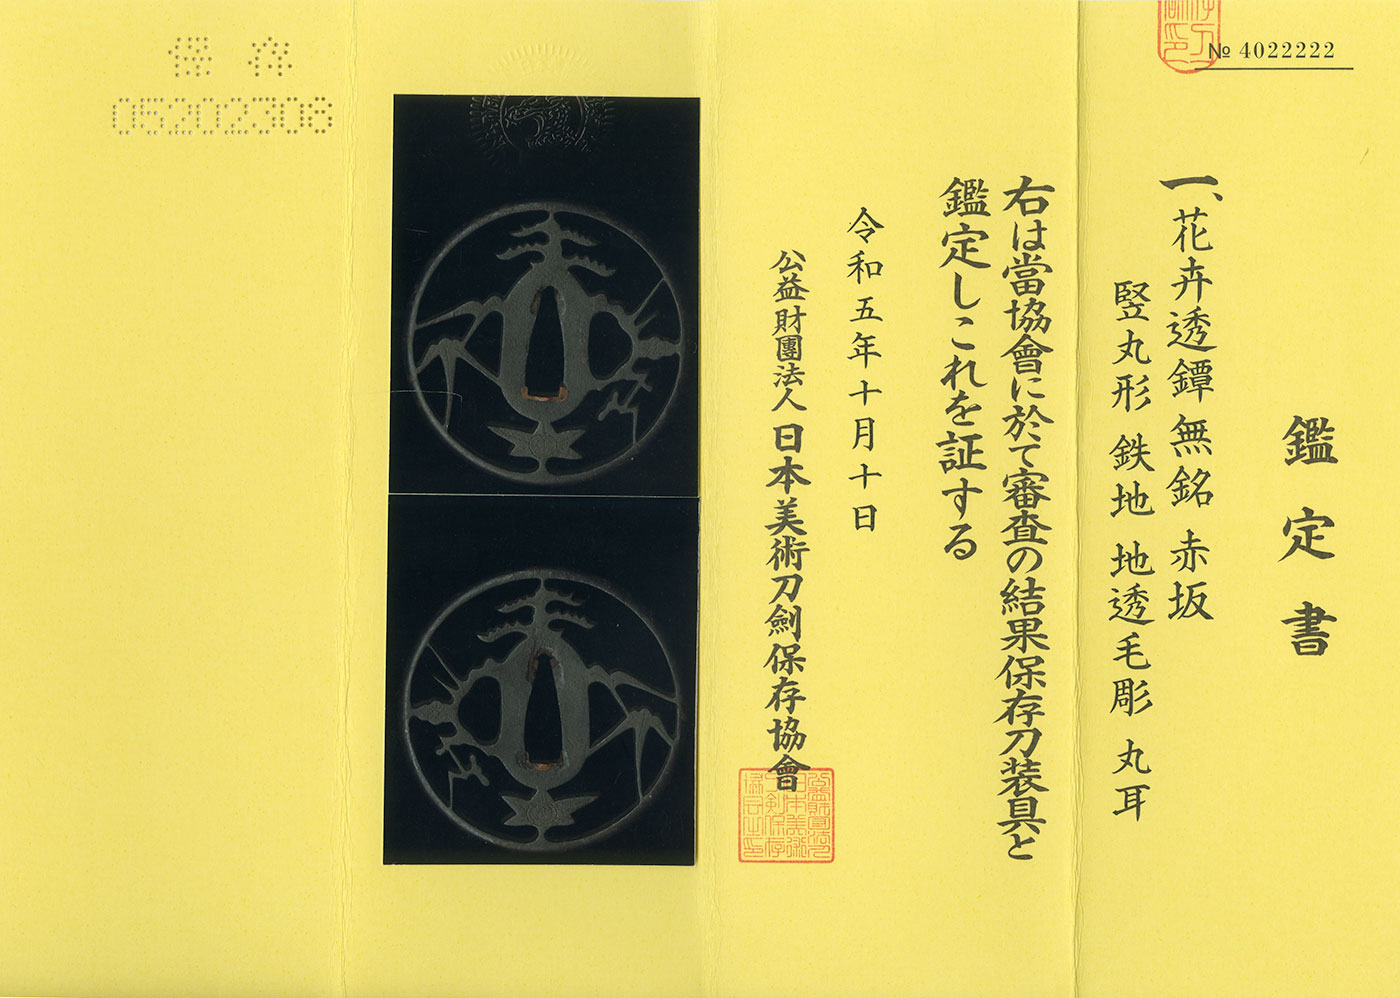 № 4022222
鑑定書
一、花卉透鐔 無銘 赤坂
竪丸形 鉄地 地透毛彫 丸耳
右は當協會に於て審査の結果保存刀装具と
鑑定しこれを証する
令和五年十月十日
公益財團法人日本美術刀劍保存協會
保存
05202308